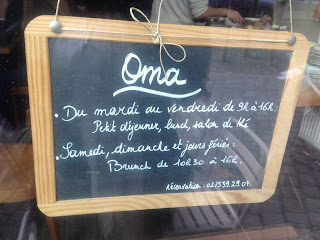 Oma
• Du mardi au vendredi de 9h à 16h :
Petit déjeuner, lunch, salon de thé
• Samedi, dimanche et jours fériés :
Brunch de 10h30 à 16h.
réservation : 02/539.29.04.